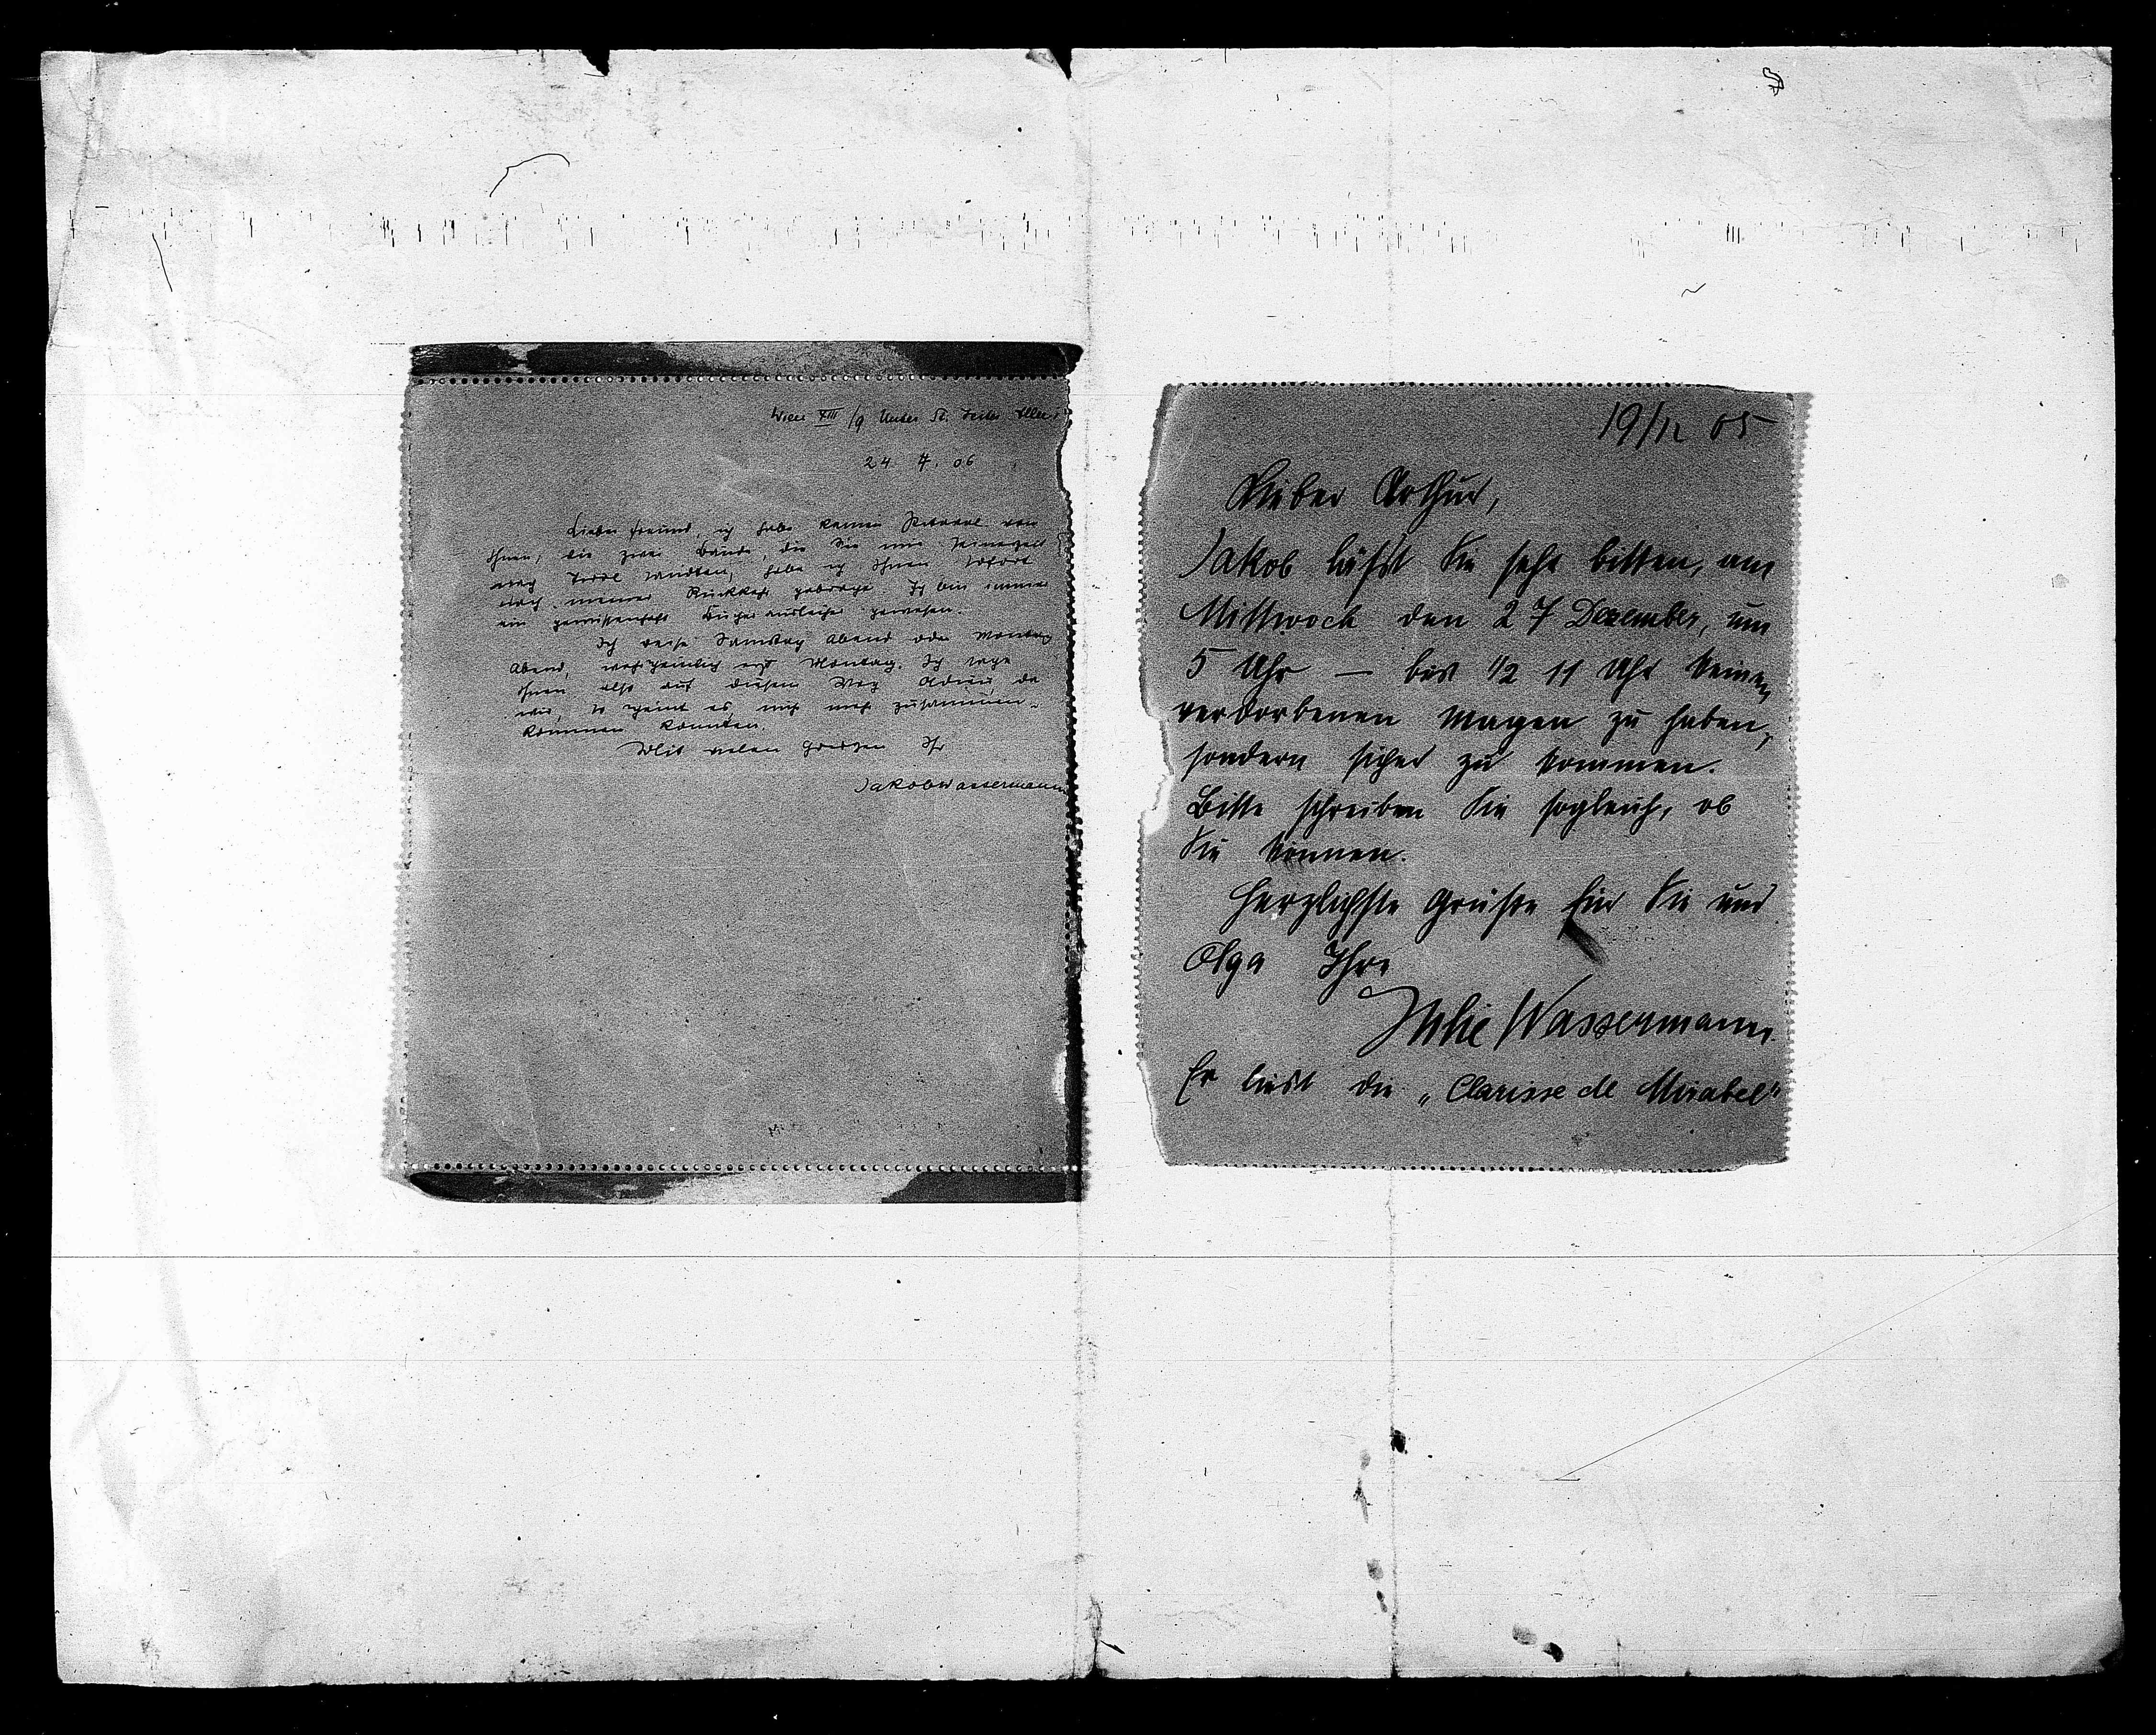 Wien XIII/9 Unter St. Veiter Allee
24. 4. 06
Lieber Freund, ich habe keinen Retaval von
Ihnen; die zwei Bände, die Sie mir seinerzeit
nach Tirol sandten, habe ich Ihnen sofort
nach meiner Rückkehr gebracht. Ich bin immer
ein gewissenhaft Bücherausleiher gewesen.
Ich reise Samstag Abend oder Montag
Abend, wahrscheinlich erst Montag. Ich sage
Ihnen also auf diesem Weg Adieu da
wir, so scheint es nicht mehr zusammen-
kommen konnten.
Mit vielen Grüßen Ihr
Jakob Wassermann
19/12 05
Lieber Arthur,
Jakob läßt Sie sehr bitten, am
Mittwoch den 27 Dezember, um
5 Uhr — bis 1/2 11 Uhr keinen
verdorbenen Magen zu haben,
sondern sicher zu kommen.
Bitte schreiben Sie sogleich, ob
Sie können.
Herzlichste Grüße für Sie und
Olga Ihre
Julie Wassermann.
Er liest die „Clarisse de Mirabel"